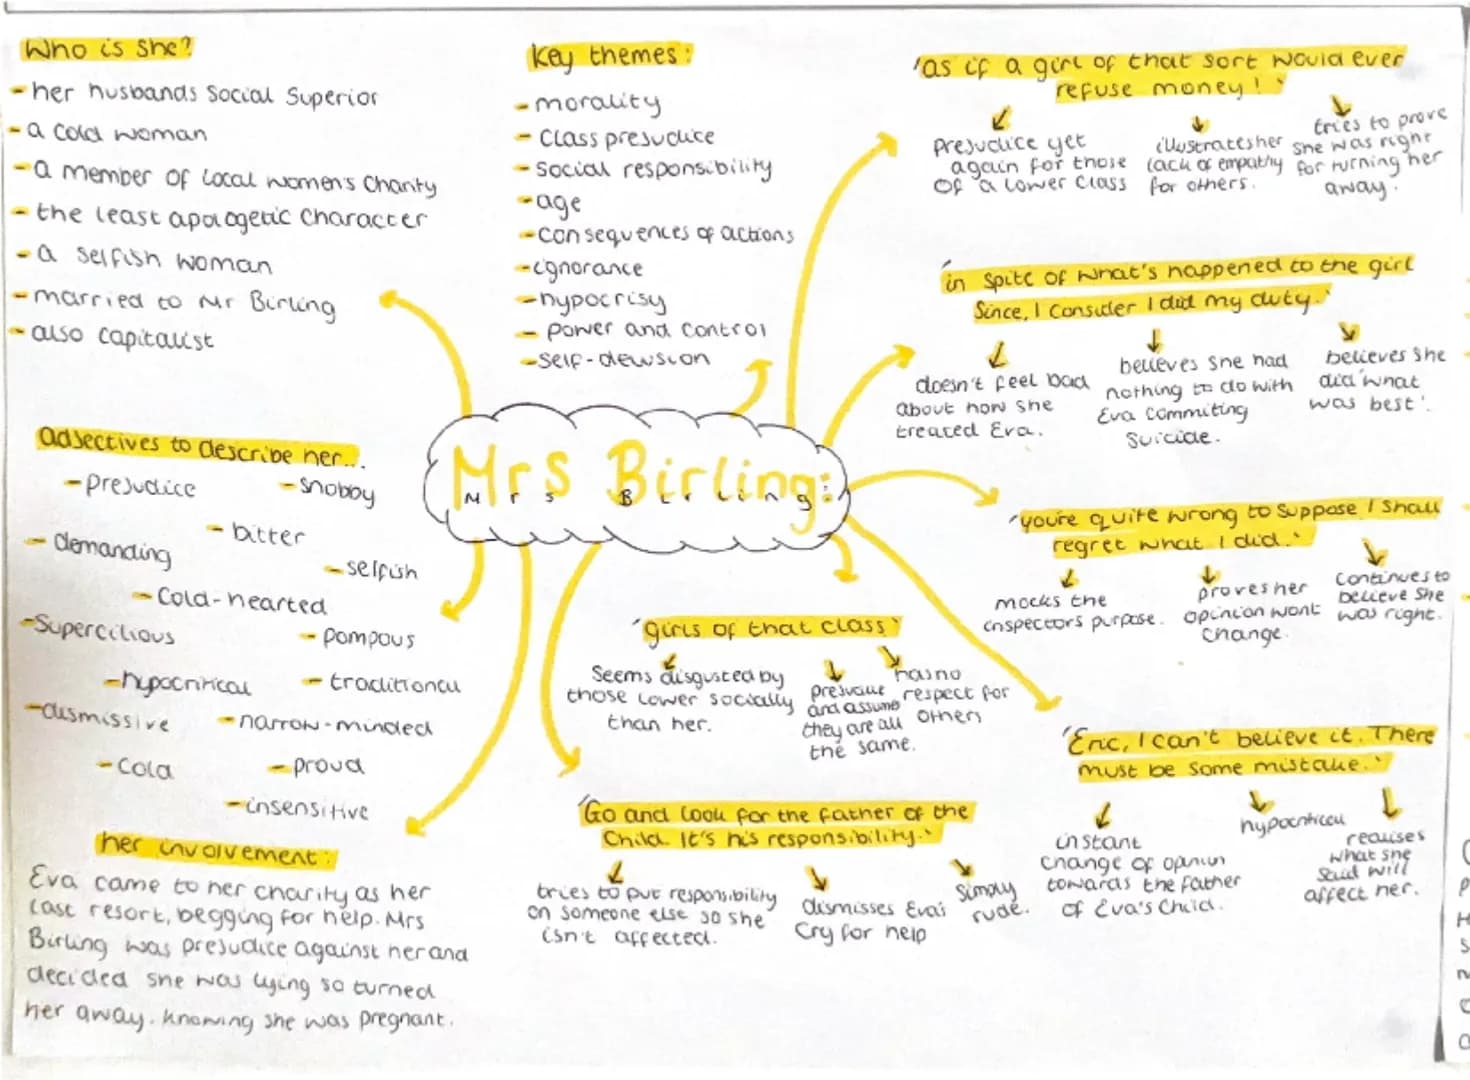 Who is she?
- her husbands Social Superior
- a cold woman
- a member of local women's charity
- the least apologetic character
- a selfish woman
- married to Mr Birling
- also capitalist
Key themes:
- morality
- Class prejudice
- Social responsibility
- age
- consequences of actions
- ignorance
- hypocrisy
- power and control
- self-delusion
'as if a girl of that sort would ever
refuse money!'
prejudice yet
again for those
of a lower class
illustrates her
lack of empathy
for others.
tries to prove
she was right
for turning her
away.
'in spite of what's happened to the girl
since, I consider I did my duty.'
doesn't feel bad
about how she
treated Eva.
believes she had
nothing to do with
Eva commiting
suicide.
believes she
did 'what
was best'.
Mrs Birling:
Mrs Birling:
adjectives to describe her...
- prejudice
- snobby
- bitter
- demanding
- selfish
- Cold-hearted
- Supercilious
- pompous
- hypocritical
- traditional
- dismissive
- narrow-minded
- cold
- proud
- insensitive
'you're quite wrong to suppose I shall
regret what I did.'
mocks the
inspectors purpose.
proves her
opinion wont
change.
continues to
believe she
was right.
'girls of that class'
Seems disgusted by
those lower socially
than her.
prejudice
and assume
they are all
the same.
has no
respect for
others
'Eric, I can't believe it. There
must be some mistake.'
instant
change of opinion
towards the father
of Eva's child.
hypocritical
realises
what she
said will
affect her.
'Go and look for the father of the
child. It's his responsibility.'
tries to put responsibility
on someone else so she
isn't affected.
dismisses Eva's
cry for help
simply
rude.
her involvement:
Eva came to her charity as her
last resort, begging for help. Mrs
Birling was prejudice against her and
decided she was lying so turned
her away. knowing she was pregnant.